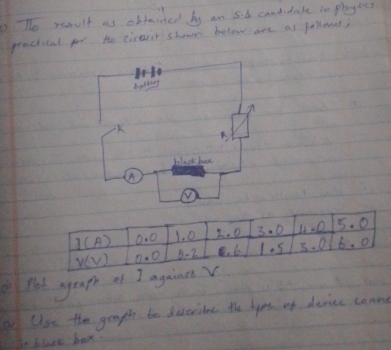 The result as obtained by an S.S candidate in physics
practical for the circuit shown below are as follows;
battery
K
R
black box
A
V
I(A) 0.0 1.0 2.0 3.0 4.0 5.0
V(V) 0.0 0.2 0.6 1.5 3.0 6.0
Plot a graph of I against V
Use the graph to describe the type of device
black box